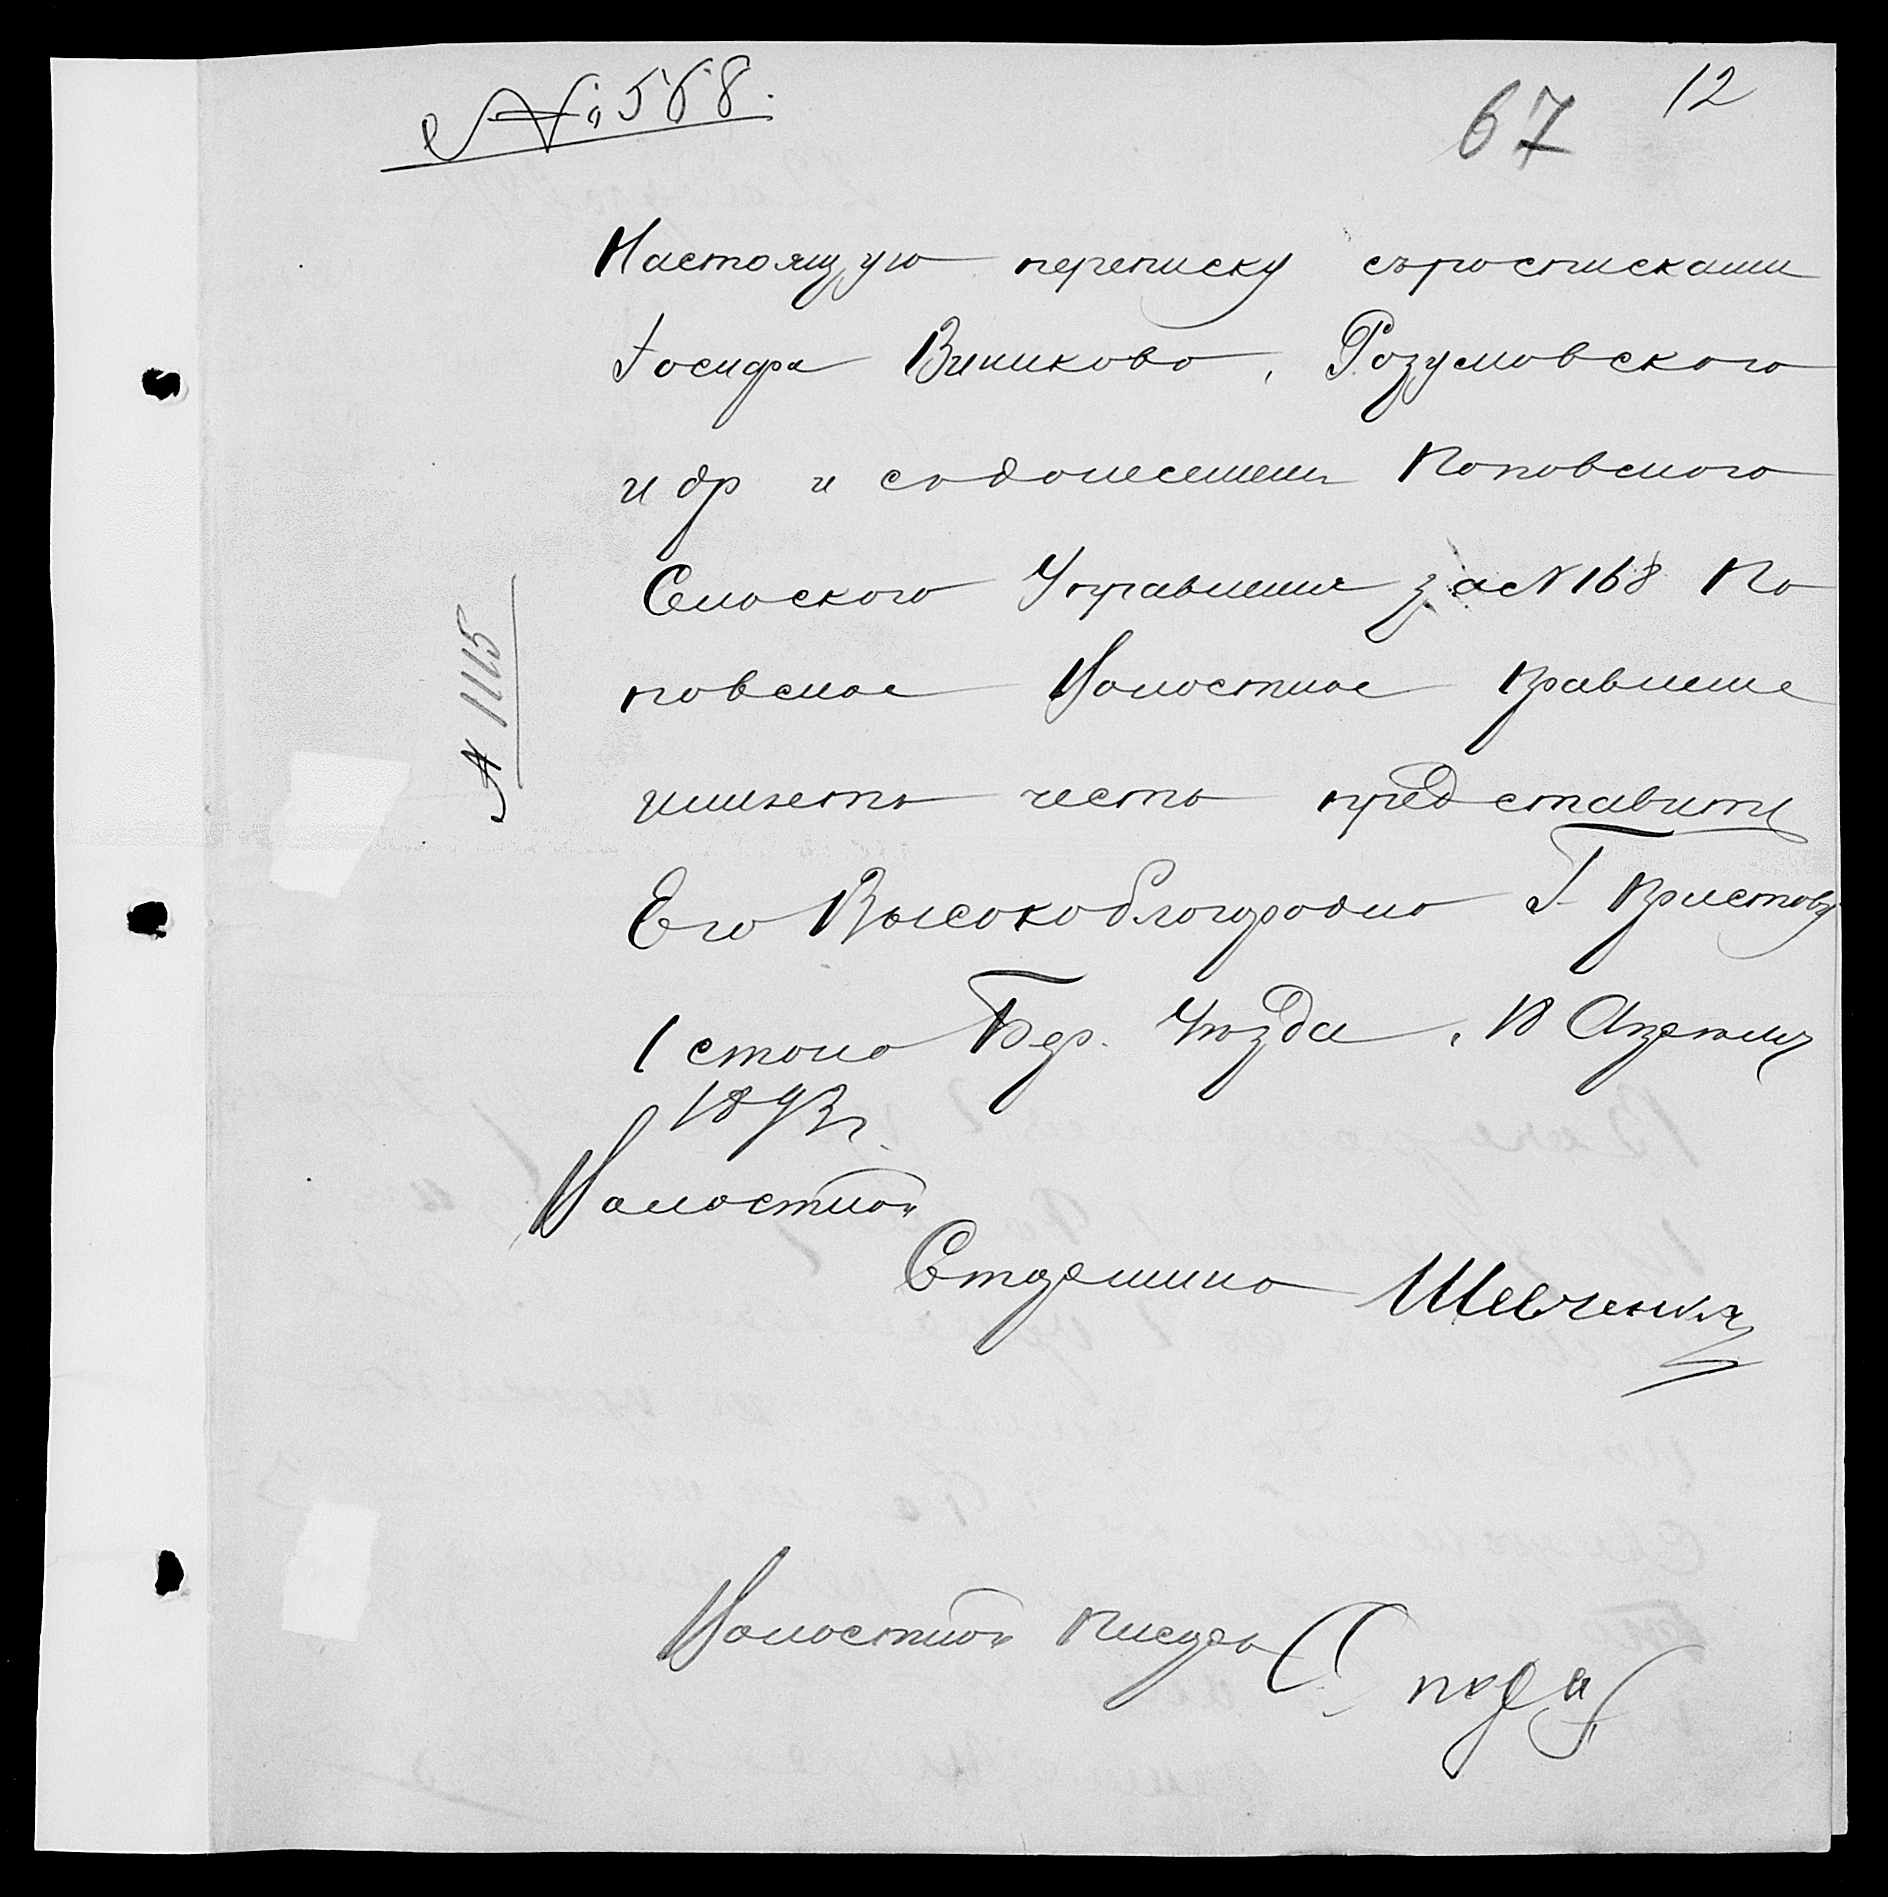 № 568.
67 12
Настоящую переписку съ росписками
Іосифа Виникова, Розумовского
и др и съ донесением Поповсиого
Сельского Управления за № 168 По
повсиое Волостное Правление
имѣетъ честь представить
Его Высокоблогородию Г. Приставу
1 стана Бер. Уѣзда. 18 Апрѣля
1893 г.
Волостной
Старшина Шевченко
Волостной Писарь
№ 1115